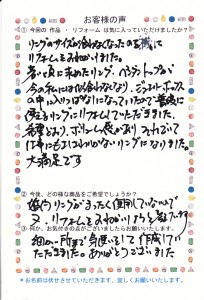 お客様の声
①今回の 作品 ・ リフォーム は気に入っていただけましたか？
リングのサイズが合わなくなったのを機に
リフォームをお願いしました。
昔の 求めたリング、ペンダントトップが
今の私には似合わなくなり、ジュエリーボックス
の中に入りっぱなしになっていたので普段に
使えるリングにリフォームしていただきました。
希望どおり、ボリューム感があり
仕事にも リングになりました。
大満足です
②今後、どの様な商品をご希望でしょうか？
リングがまったく使用していないので
又、リフォームをお願いしようと考え
③何か、お気付きの点がございましたらお願いいたします。
細かい所まで気使いをして作成してい
ただきました。ありがとうございました
＊お名前は伏せさせていただきます、宜しくお願いします。